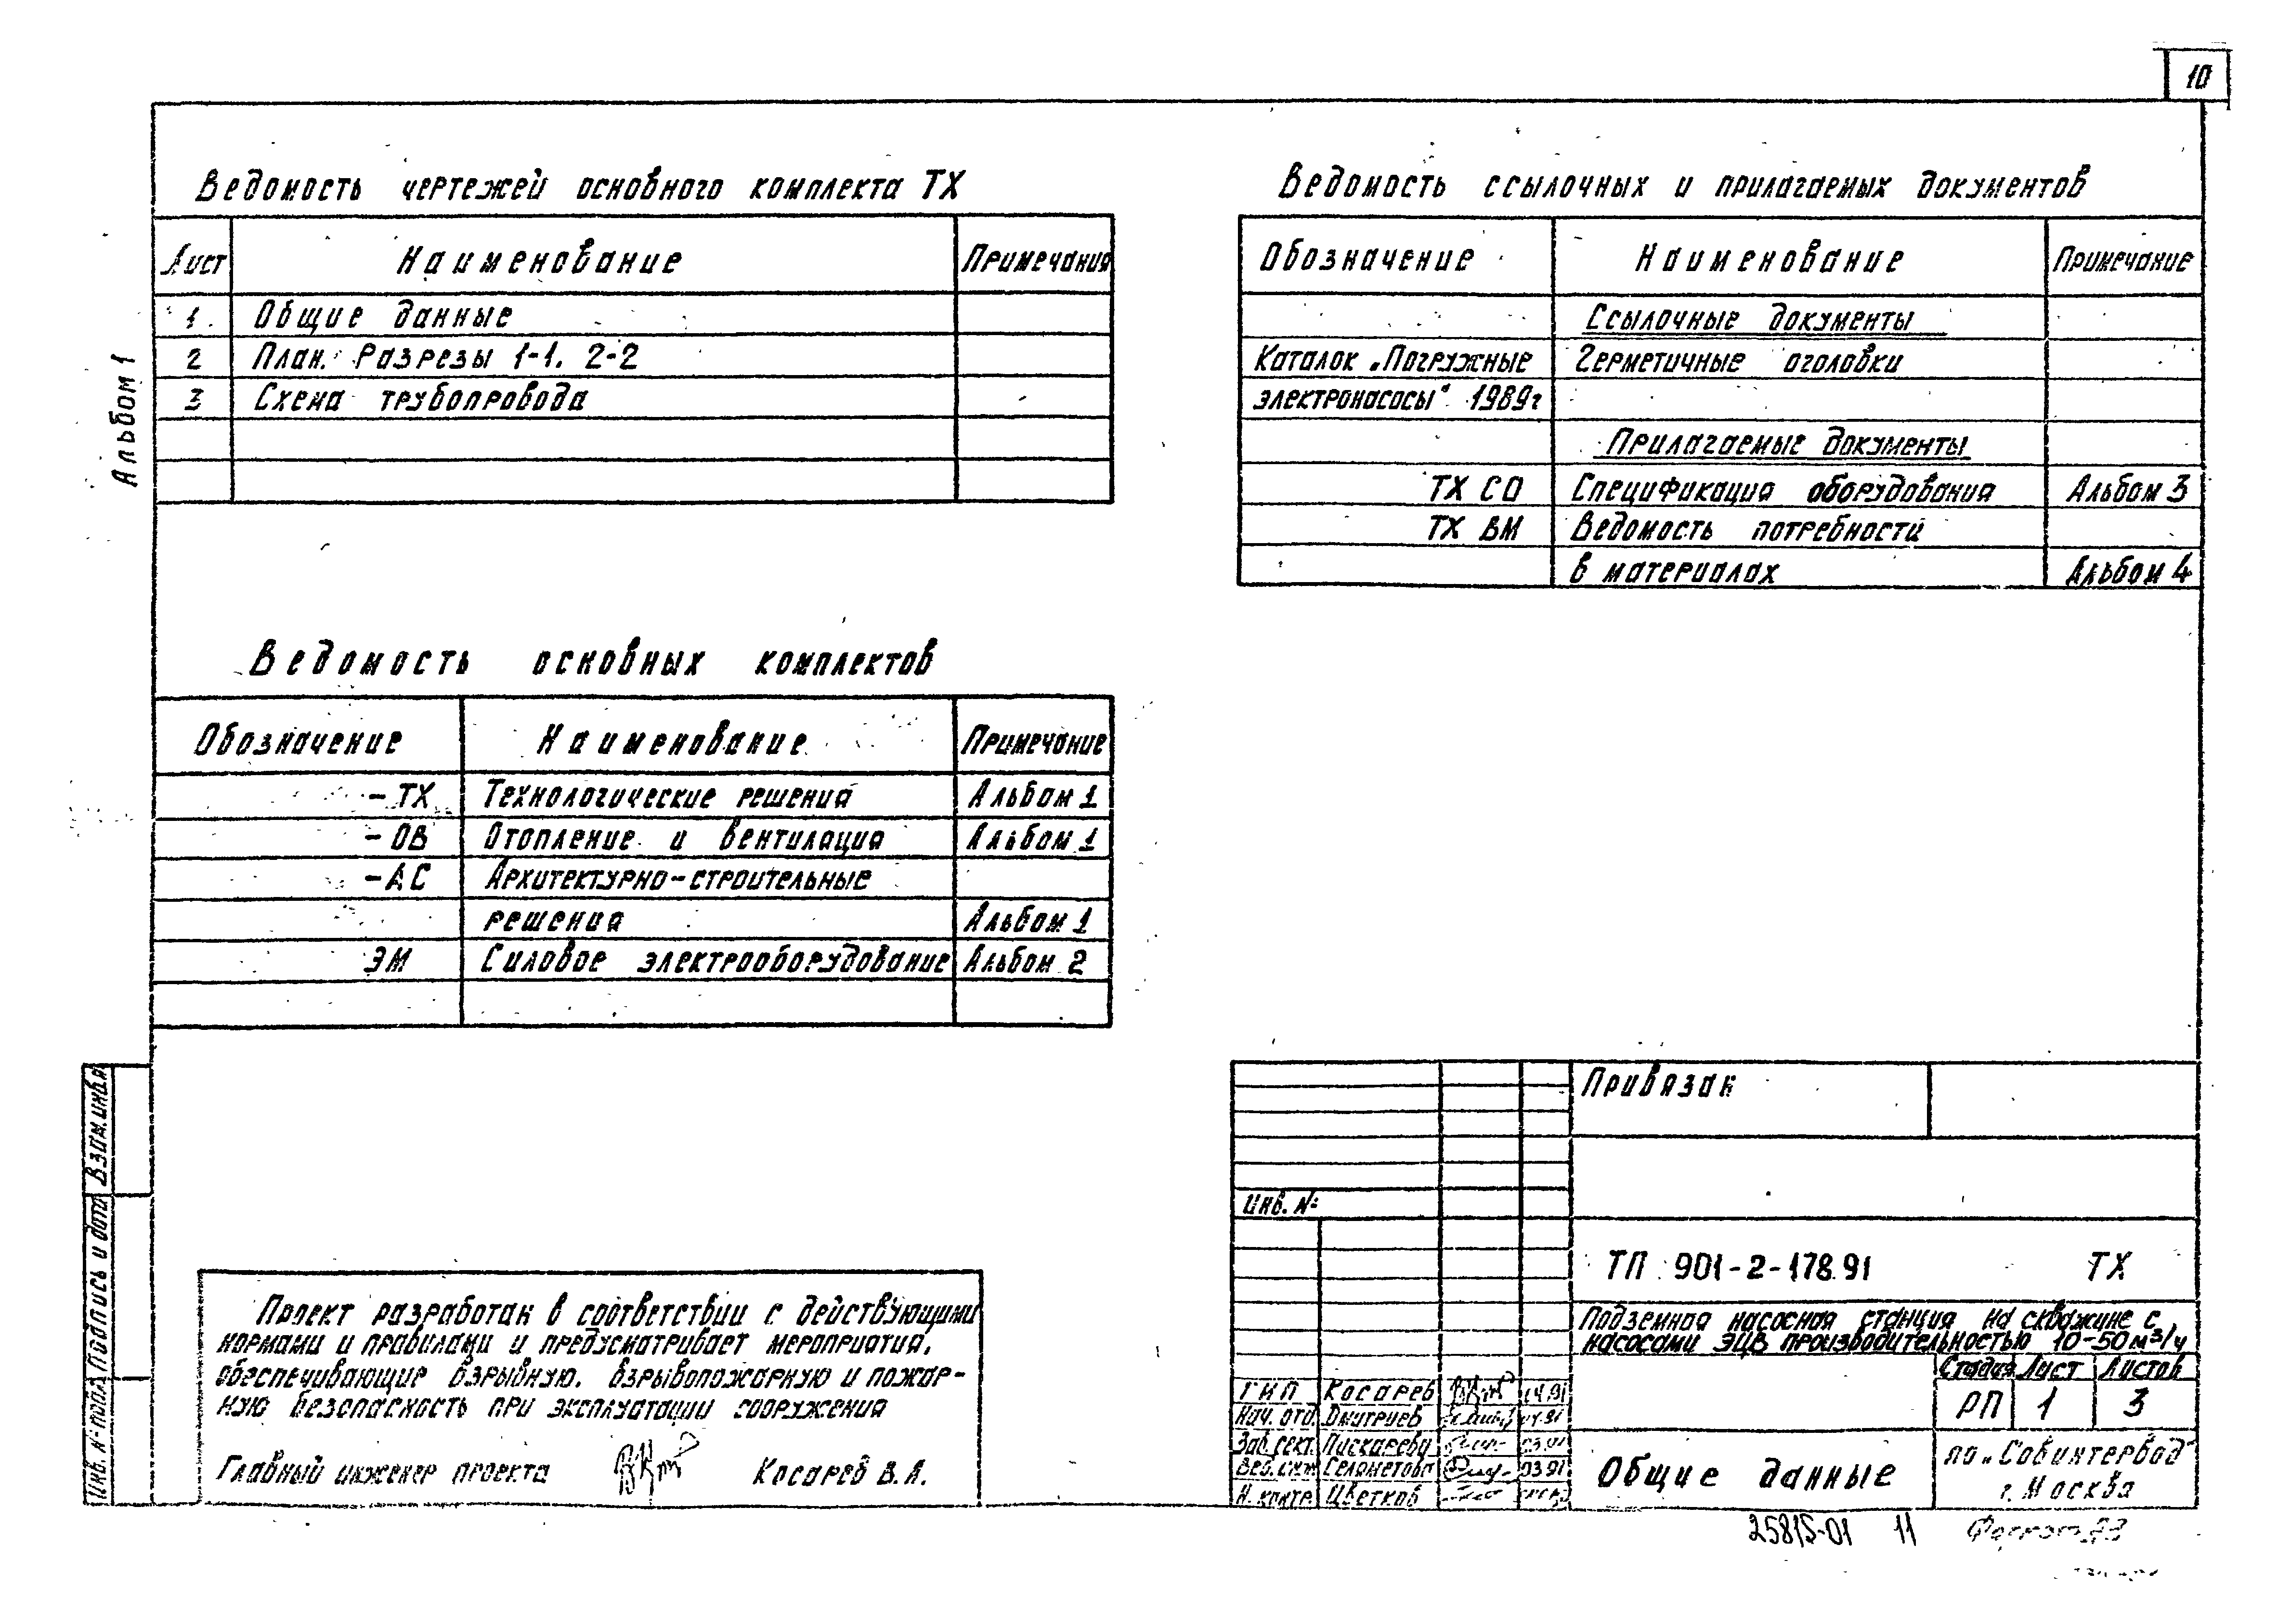 10
Альбом 1
Ведомость чертежей основного комплекта ТХ
Лист Наименование Примечания
1 Общие данные
2 План. Разрезы 1-1, 2-2
3 Схема трубопровода
Ведомость ссылочных и прилагаемых документов
Обозначение Наименование Примечание
Ссылочные документы
Каталок „Погружные Герметичные оголовки
электронасосы" 1989г
Прилагаемые документы
ТХ СО Спецификация оборудования Альбом 3
ТХ ВМ Ведомость потребности
в материалах Альбом 4
Ведомость основных комплектов
Обозначение Наименование Примечание
-ТХ Технологические решения Альбом 1
-ОВ Отопление и вентилация Альбом 1
-АС Архитектурно-строительные
решения Альбом 1
ЭМ Силовое электрооборудование Альбом 2
Инв. № подл Подпись и дата Взам. инв.№
Проект разработан в соответствии с действующими
нормами и правилами и предусматривает мероприятия,
обеспечивающие взрывную, взрывопожарную и пожар-
ную безопасность при эксплуатации сооружения
Главный инженер проекта Косарев В.А.
Привязан
Инв. №
ТП 901-2-178.91 ТХ
Подземная насосная станция на скважине с
насосами ЭЦВ производительностью 10-50 м³/ч
Стадия Лист Листов
РП 1 3
ГИП Косарев 04.91
Нач. отд. Дмитриев 04.91
Зав. сект. Пискарева 03.91
Вед. инж Селяметова 03.91
Н. контр. Цветков
Общие данные
по „Совинтервод"
г. Москва
25815-01 11 Формат А3